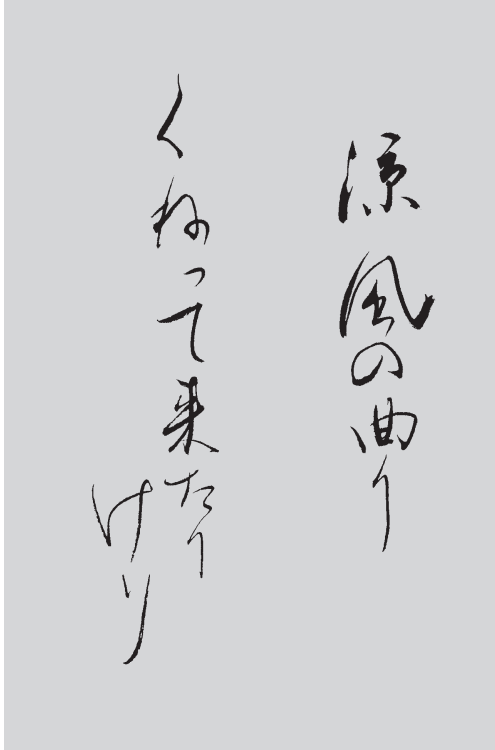 涼風の曲り
くねって来たり
けり